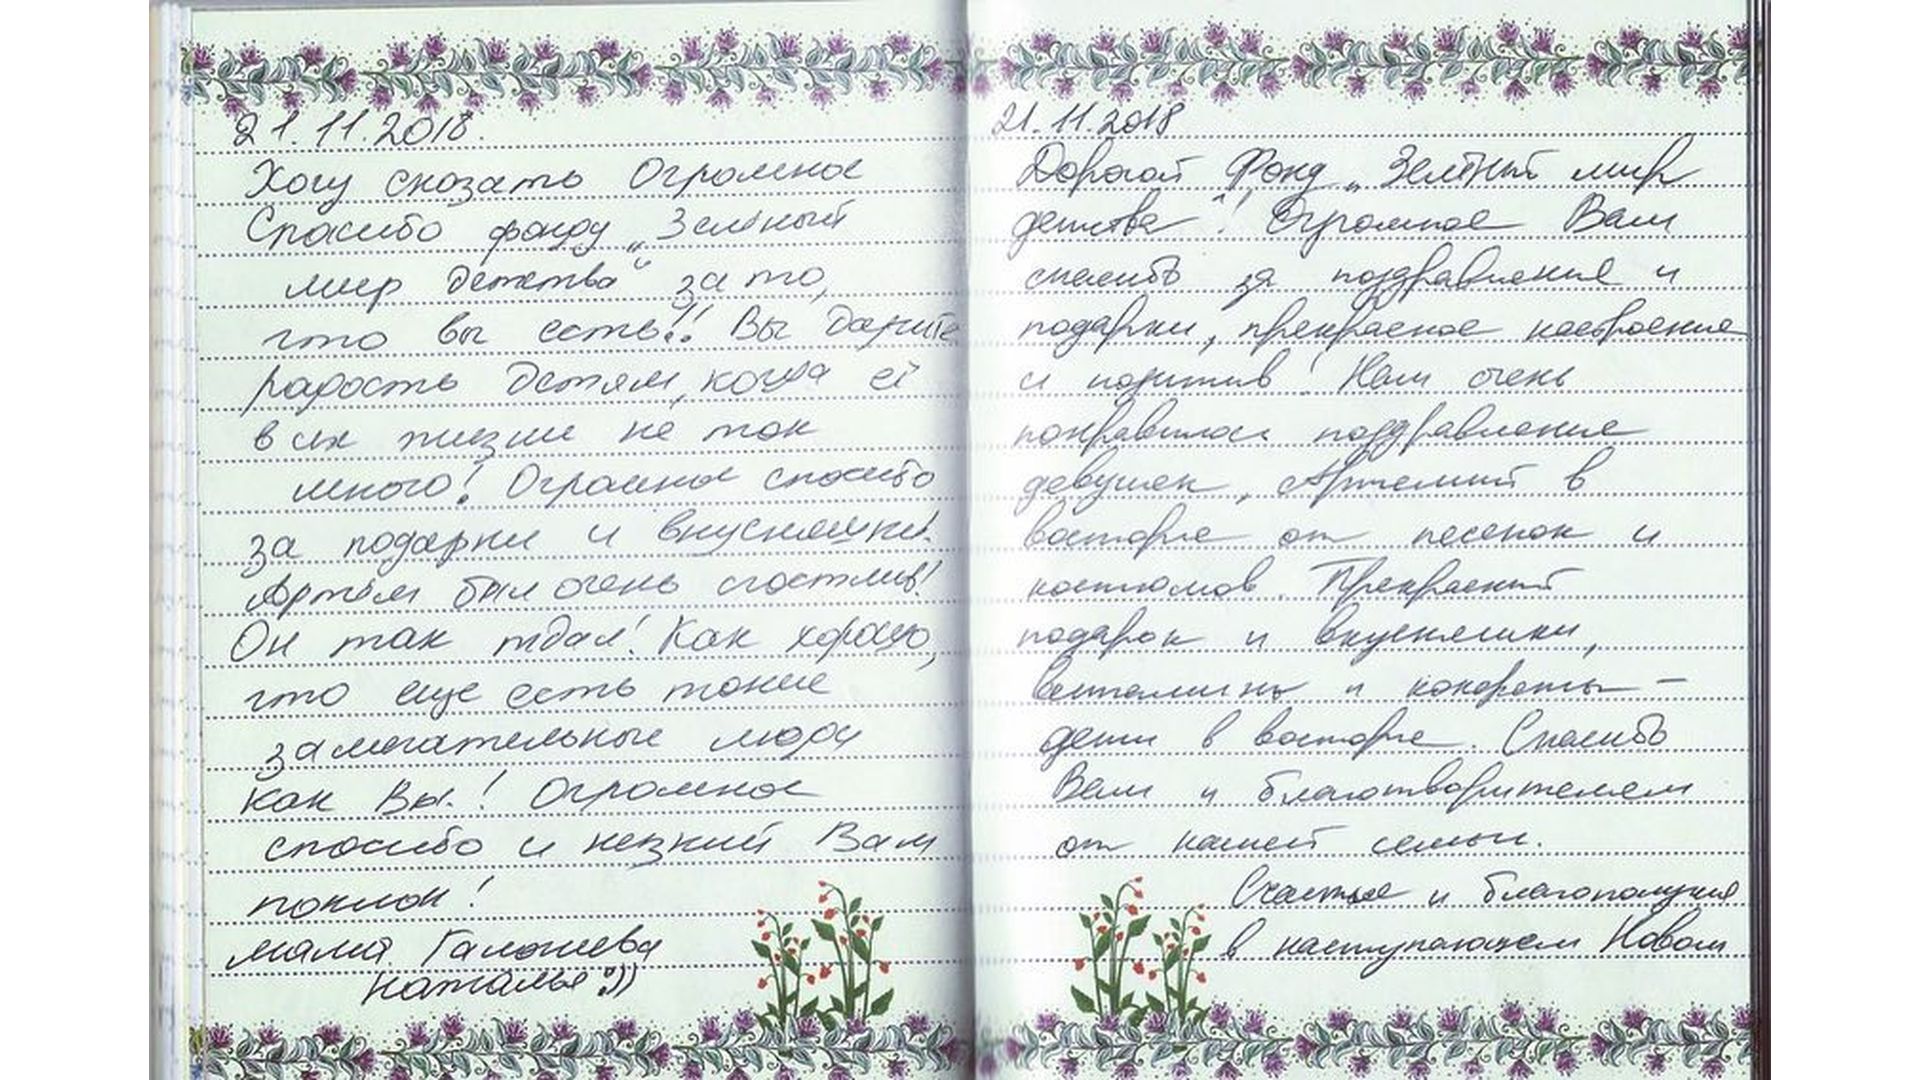 21.11.2018.
Хочу сказать Огромное
Спасибо фонду „Зелёный
мир детства" за то,
что вы есть!! Вы дарите
радость детям, когда её
в их жизни не так
много! Огромное спасибо
за подарки и вкусняшки!
Артём был очень счастлив!
Он так ждал! Как хорошо,
что еще есть такие
замечательные люди
как Вы! Огромное
спасибо и низкий Вам
поклон!
мама
Наталья :))
21.11.2018
Дорогой Фонд „Зелёный мир
детства"! Огромное Вам
спасибо за поздравления и
подарки, прекрасное настроение
и позитив! Нам очень
понравилось поздравление
девушек, Артемий в
восторге от песенок и
костюмов. Прекрасный
подарок и вкусняшки,
витамины и конфеты –
дети в восторге. Спасибо
Вам и благотворителям
от нашей семьи.
Счастья и благополучия
в наступающем Новом